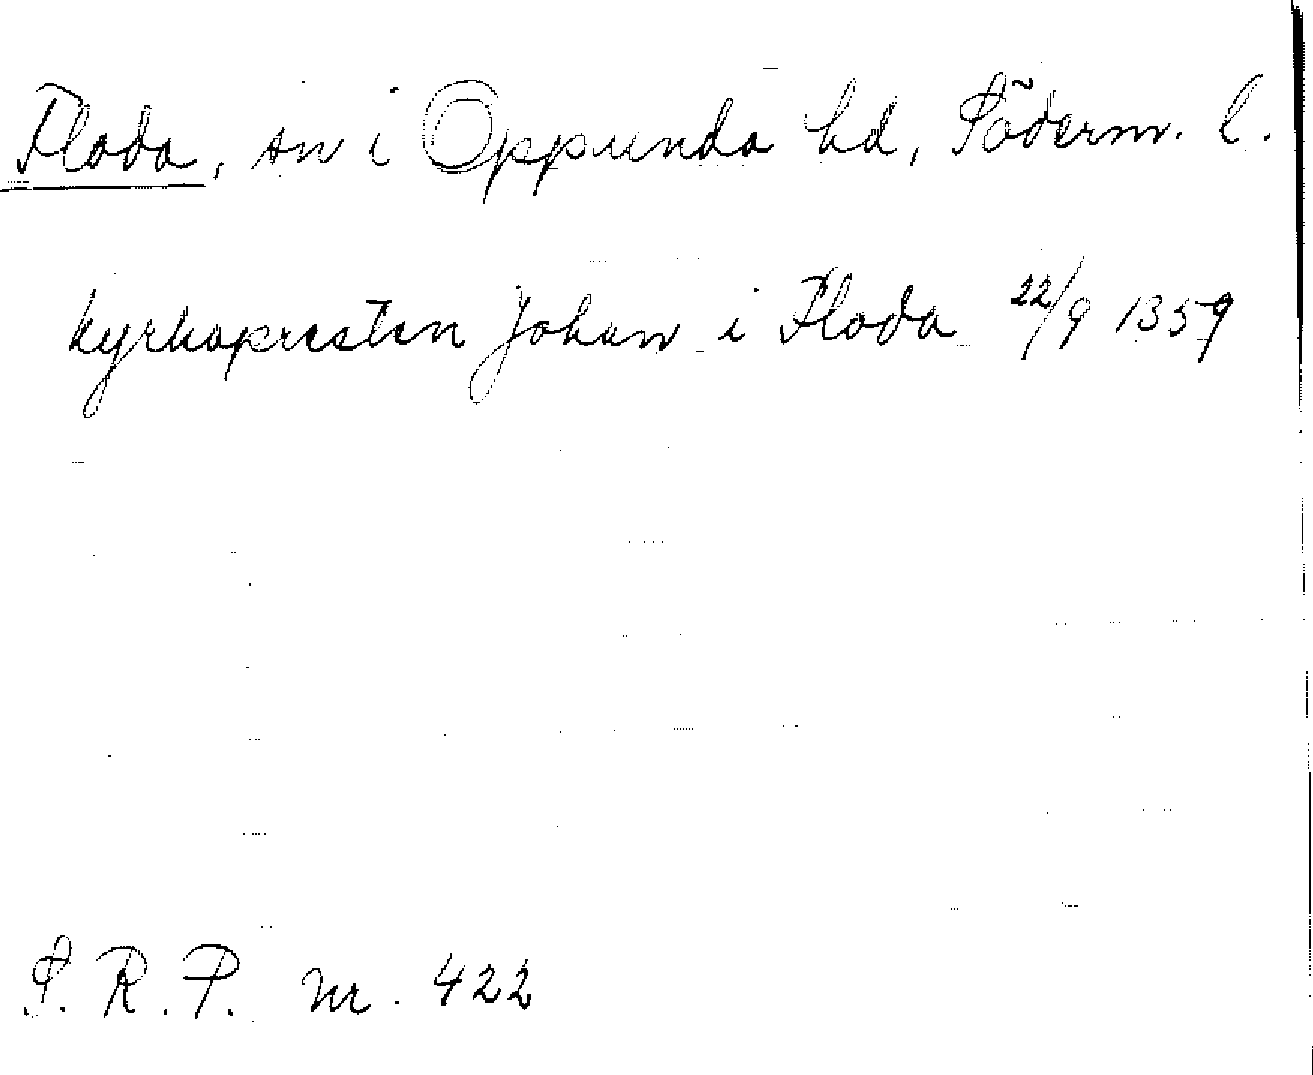 Floda, sn i Oppunda hd, Söderm. l.
kyrkopresten Johan i Floda 22/9 1359
S. R. P. nr. 422